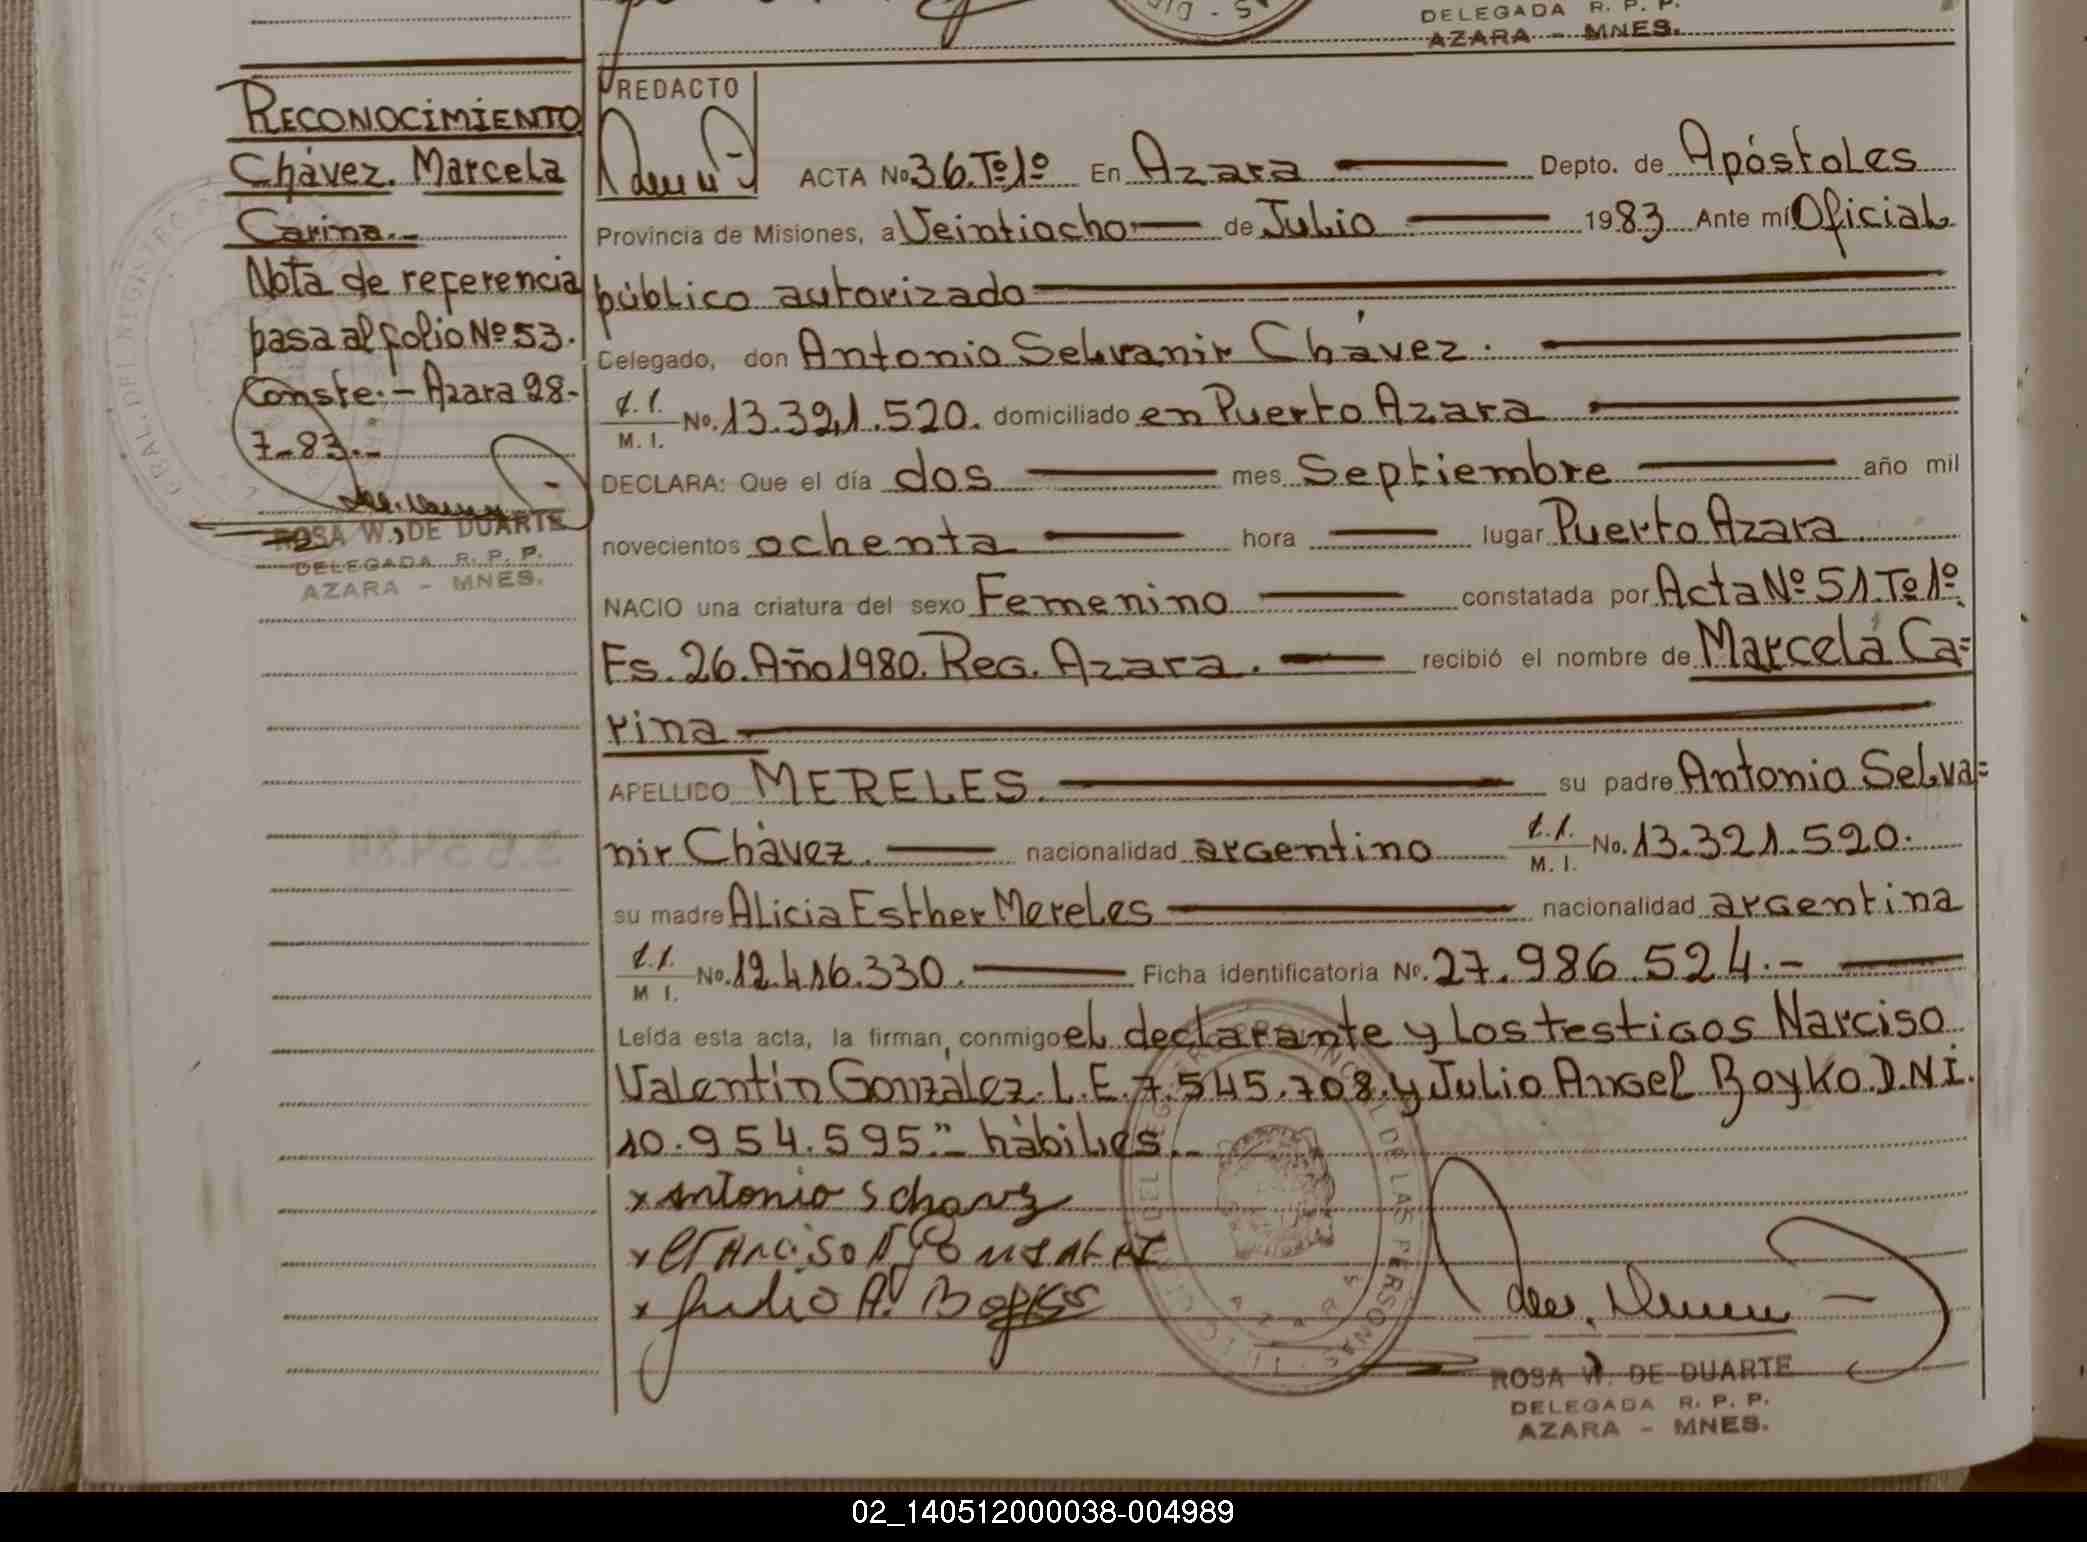 DELEGADA R. P. P.
AZARA - MNES.
RECONOCIMIENTO
Chávez. Marcela
Carina.-
Nota de referencia
pasa al folio Nº 53.
Conste.- Azara 28-
7-83.-
ROSA W. DE DUARTE
DELEGADA R. P. P.
AZARA - MNES.
REDACTO
ACTA No 36.Tº1º En Azara Depto. de Apóstoles
Provincia de Misiones, a Veintiocho de Julio 1983 Ante mí Oficial
público autorizado
Celegado, don Antonio Selvanir Chávez.
M. I. No. 13.321.520. domiciliado en Puerto Azara
DECLARA: Que el día dos mes Septiembre año mil
novecientos ochenta hora lugar Puerto Azara
NACIO una criatura del sexo Femenino constatada por Acta Nº 51 Tº 1º.
Fs. 26. Año 1980. Reg. Azara. recibió el nombre de Marcela Ca=
rina
APELLIDO MERELES su padre Antonio Selva=
nir Chávez. nacionalidad argentino M. I. No. 13.321.520.
su madre Alicia Esther Mereles nacionalidad argentina
M I. No. 12.416.330. Ficha identificatoria Nº. 27.986.524.-
Leída esta acta, la firman, conmigo el declarante y los testigos Narciso
Valentín Gonzalez. L.E. 7.545.708. y Julio Angel Boyko. D.N.I.
10.954.595".- hábiles.-
x Antonio S chavez
x Narciso V Gonzalez
x Julio A. Boyko
ROSA W. DE DUARTE
DELEGADA R. P. P.
AZARA - MNES.
02_140512000038-004989